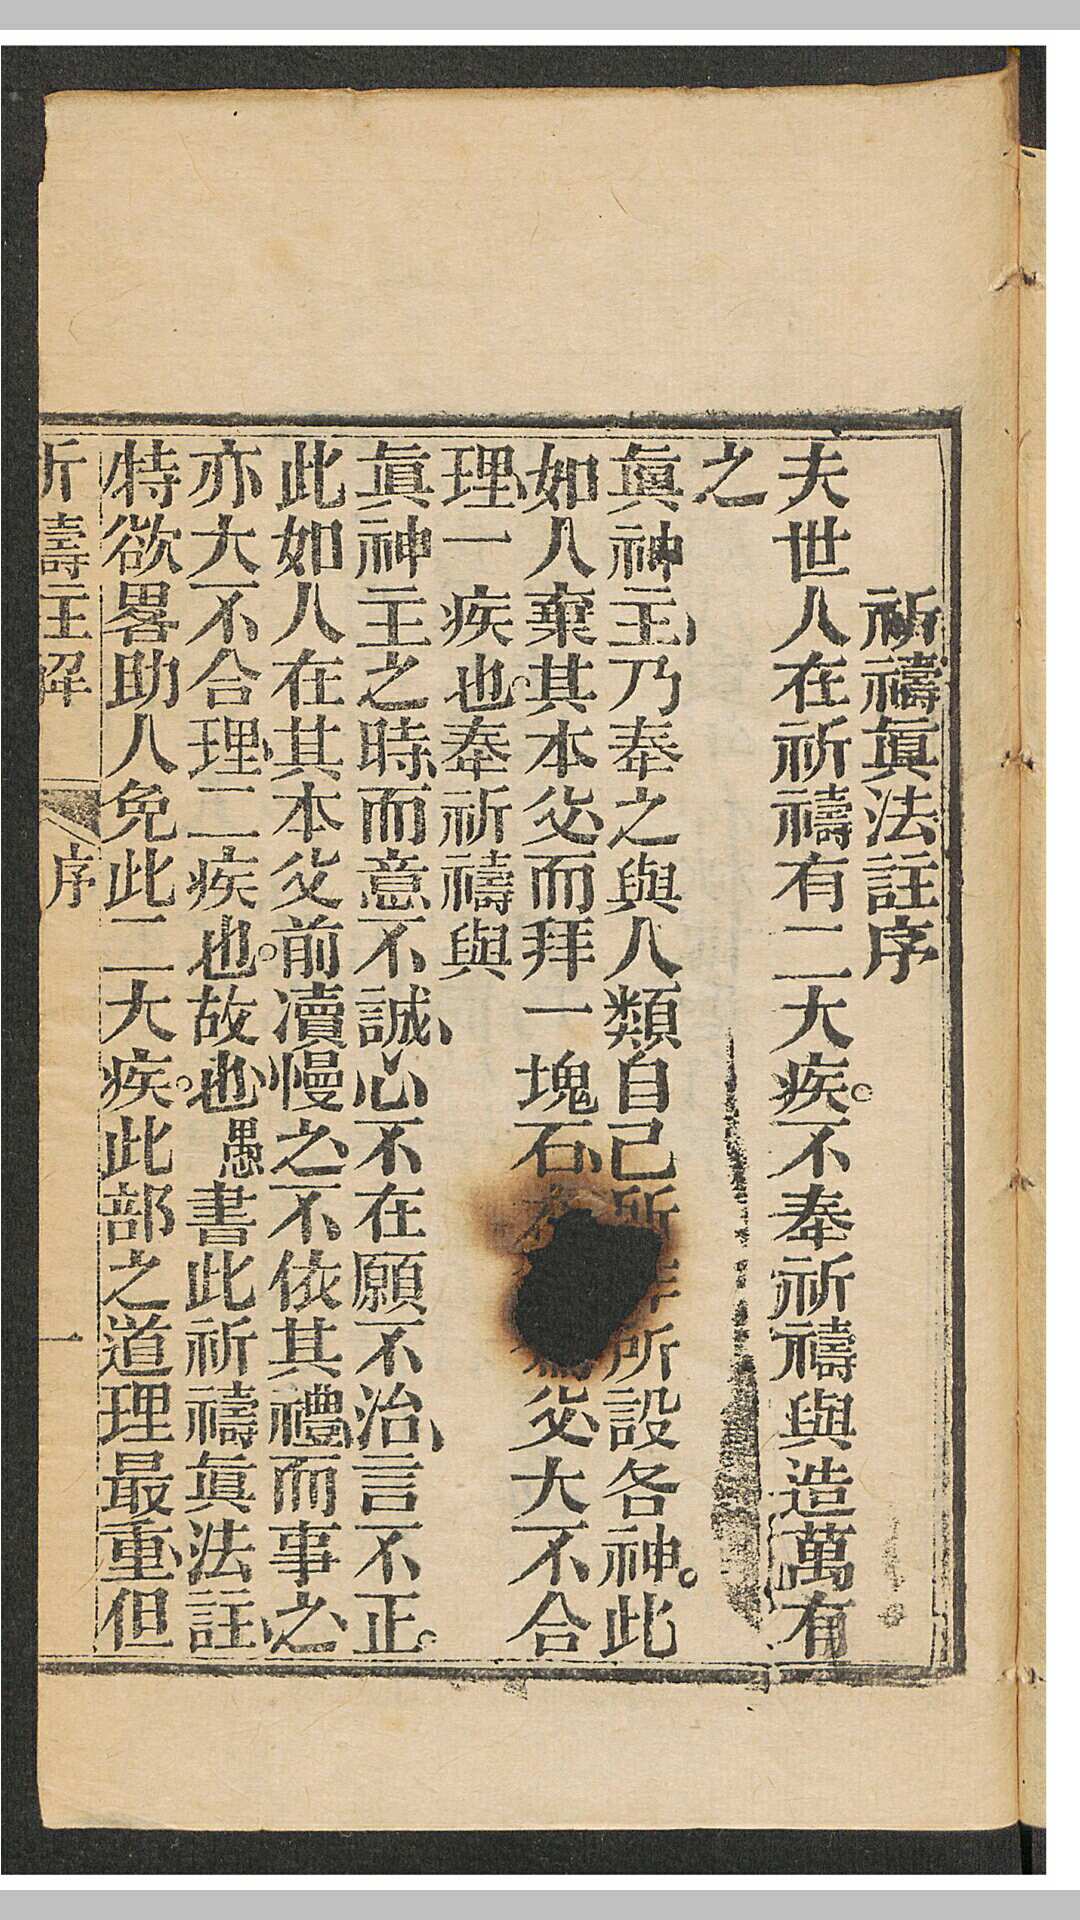 祈禱眞法註序
夫世人在祈禱有二大疾。不奉祈禱與造萬有
之
眞神主、乃奉之與人類自己所作所設各神。此
如人棄其本父而拜一塊石、父、大不合
理、一疾也。奉祈禱與
眞神主之時、而意不誠、心不在、願不治、言不正。
此如人在其本父前瀆慢之、不依其禮、而事之、
亦大不合理、二疾也。故也、愚書此祈禱眞法註、
特欲畧助人免此二大疾。此部之道理最重、但
祈禱註解 序 一